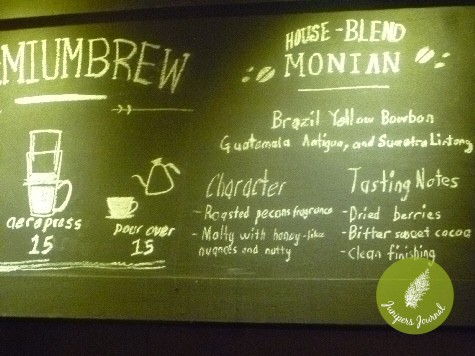 EMIUMBREW
aeropress
15
pour over
15
HOUSE-BLEND
MONIAN
Brazil Yellow Bourbon
Guatemala Antigua, and Sumatra Lintong
Character
- Roasted pecans fragrance
- Malty with honey-like
nuances and nutty
Tasting Notes
- Dried berries
- Bitter sweet cocoa
- Clean finishing
Junipers Journal